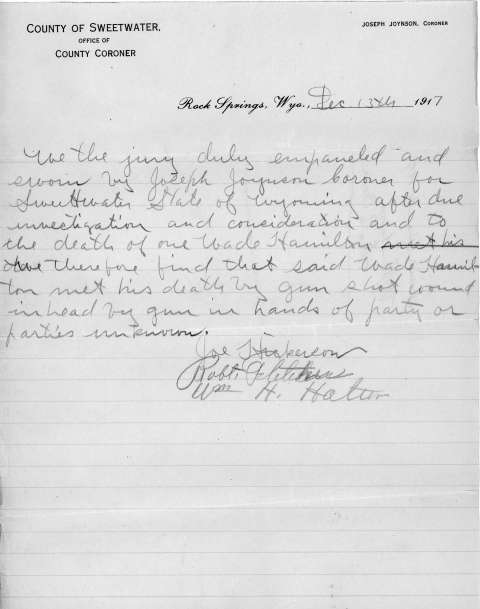 COUNTY OF SWEETWATER.
OFFICE OF
COUNTY CORONER
JOSEPH JOYNSON, CORONER
Rock Springs, Wyo., Dec 13th 1917
We the jury duly empaneled and
sworn by Joseph Joynson Coroner for
Sweetwater State of Wyoming after due
investigation and consideration and to
the death of one Wade Hamilton met his
therefore find that said Wade Hamil-
ton met his death by gun shot wound
in head by gun in hands of party or
parties unknown.
Joe
Robt.
Wm H.